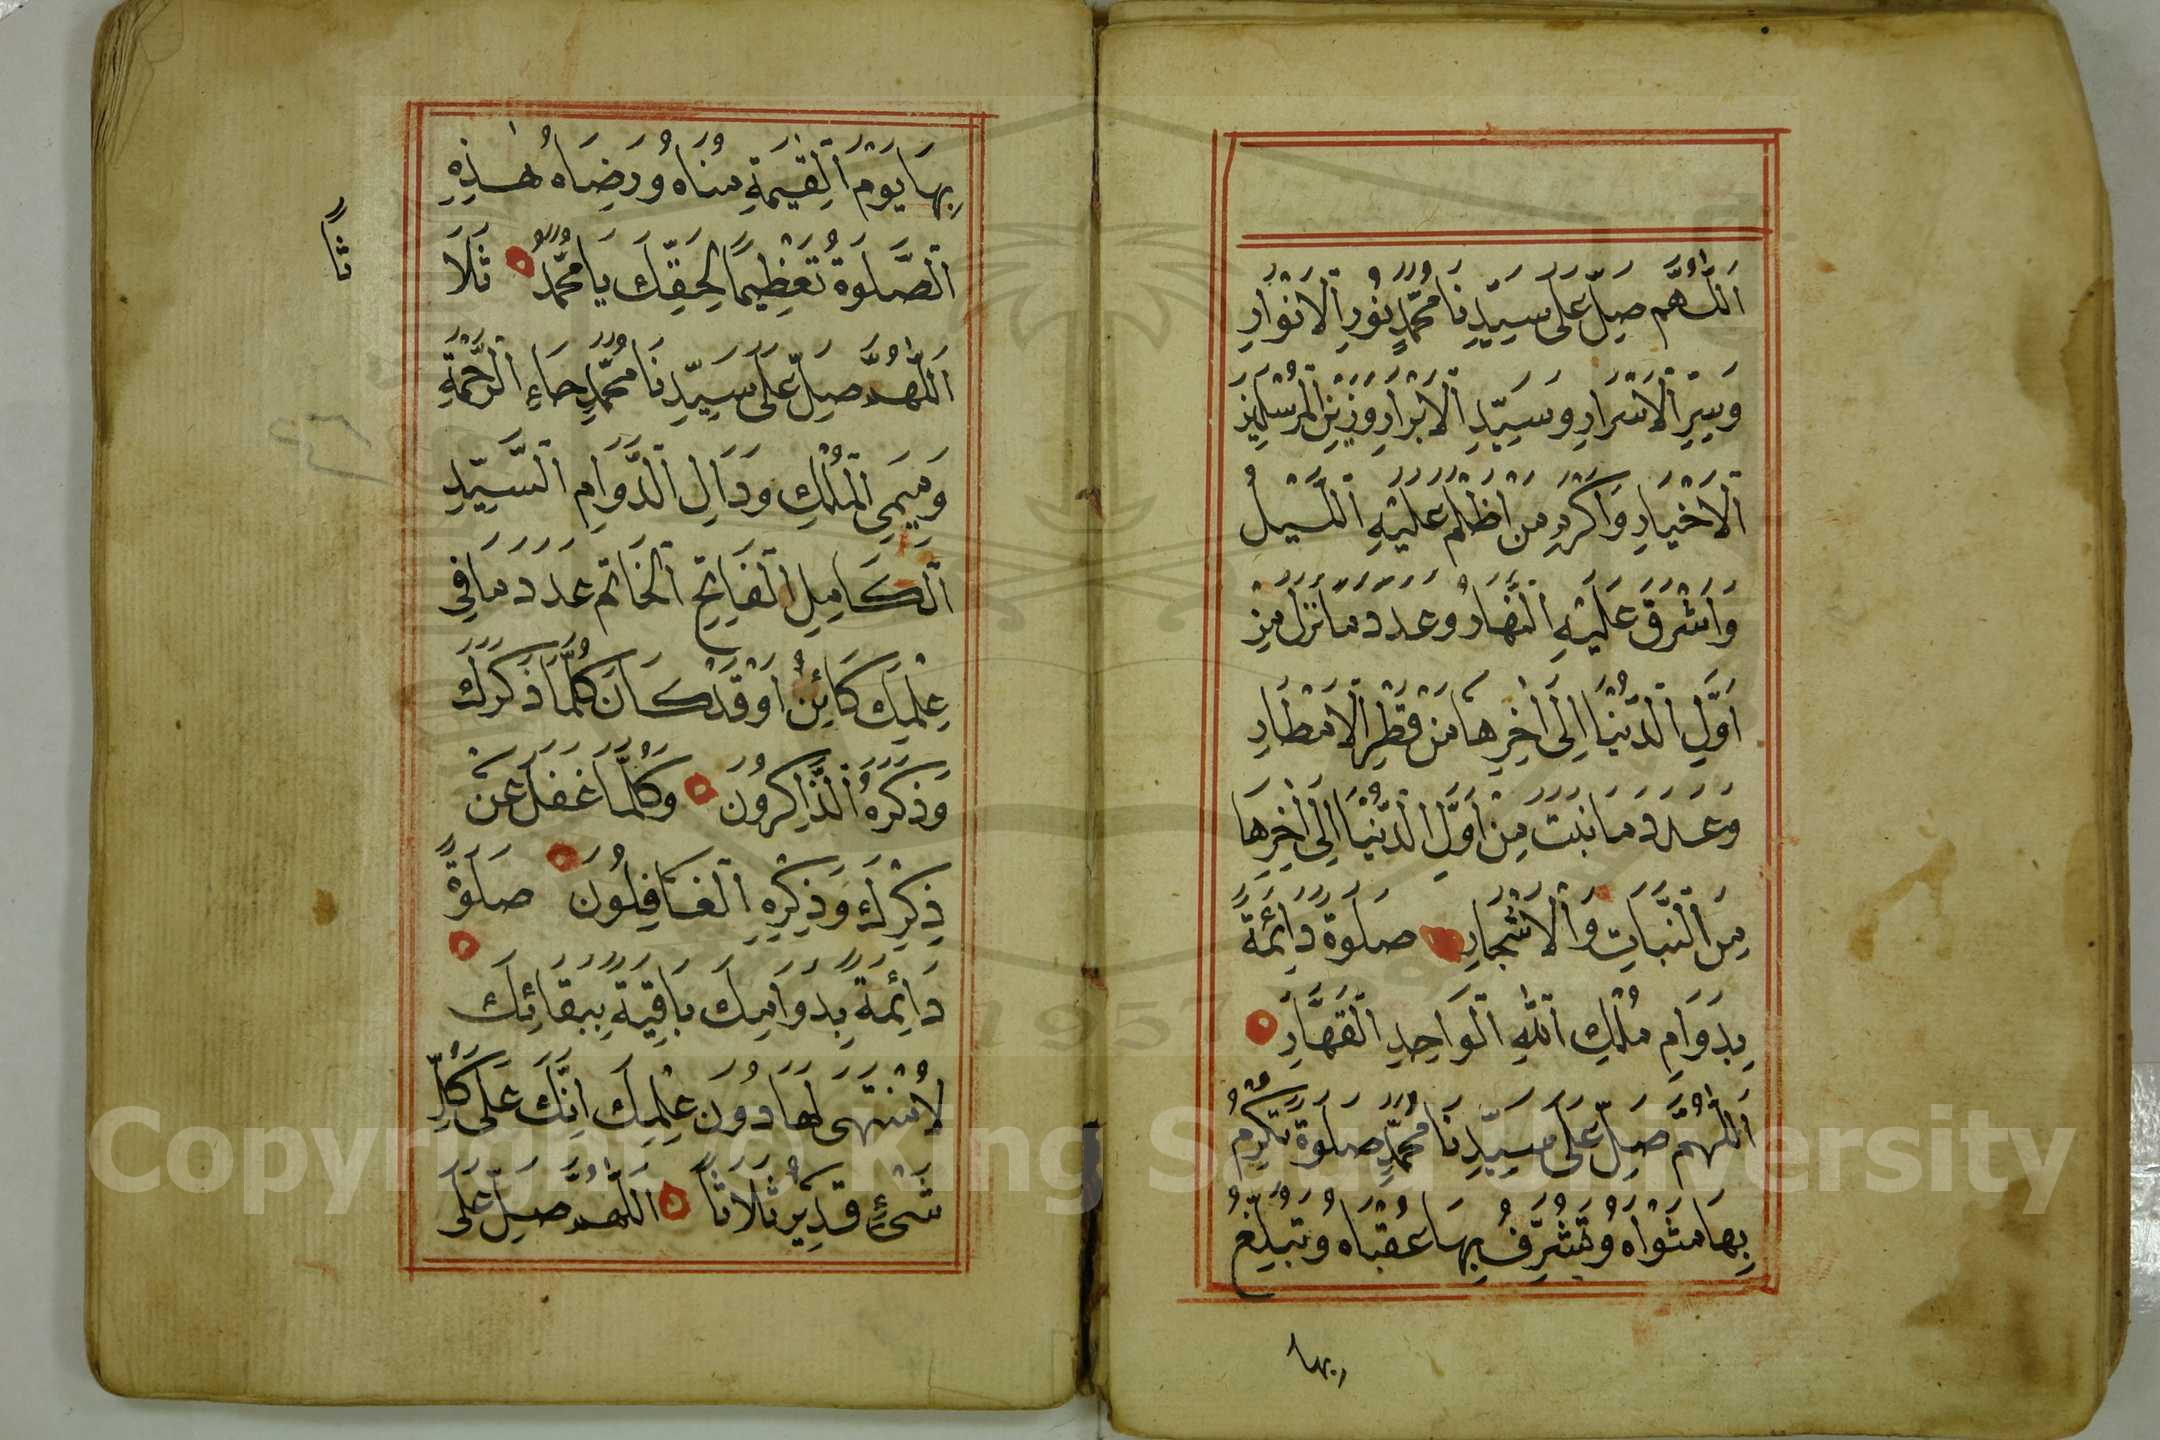 اَللّٰهُمَّ صَلِّ عَلَى سَيِّدِنَا مُحَمَّدٍ نُورِ اْلاَنْوَارِ
وَسِرِّ اْلاَسْرَارِ وَسَيِّدِ اْلاَبْرَارِ وَزَيْنِ الْمُرْسَلِينَ
اْلاَخْيَارِ وَاَكْرَمِ مَنْ اَظْلَمَ عَلَيْهِ الَّيْلُ
وَاَشْرَقَ عَلَيْهِ النَّهَارُ وَعَدَدَ مَا نَزَلَ مِنْ
اَوَّلِ الدُّنْيَا اِلَى اٰخِرِهَا مِنْ قَطْرِ اْلاَمْطَارِ
وَعَدَدَ مَا نَبَتَ مِنْ اَوَّلِ الدُّنْيَا اِلَى اٰخِرِهَا
مِنَ النَّبَاتِ وَاْلاَشْجَارِ صَلَوةً دَائِمَةً
بِدَوَامِ مُلْكِ اللّٰهِ الْوَاحِدِ الْقَهَّارِ
اَللّٰهُمَّ صَلِّ عَلَى سَيِّدِنَا مُحَمَّدٍ صَلَوةً تُكْرِمُ
بِهَا مَثْوَاهُ وَتُشَرِّفُ بِهَا عُقْبَاهُ وَتُبَلِّغُ
بها
بِهَا يَوْمَ الْقِيٰمَةِ مُنَاهُ وَرِضَاهُ هٰذِهِ
الصَّلَوةُ تَعْظِيمًا لِحَقِّكَ يَا مُحَمَّدُ ثَلَا
ثًا
اَللّٰهُمَّ صَلِّ عَلَى سَيِّدِنَا مُحَمَّدٍ حَاءِ الرَّحْمَةِ
وَمِيمَىِ الْمُلْكِ وَدَالِ الدَّوَامِ السَّيِّدِ
الْكَامِلِ الْفَاتِحِ الْخَاتَمِ عَدَدَ مَا فِى
عِلْمِكَ كَائِنٌ اَوْ قَدْ كَانَ كُلَّمَا ذَكَرَكَ
وَذَكَرَهُ الذَّاكِرُونَ وَكُلَّمَا غَفَلَ عَنْ
ذِكْرِكَ وَذِكْرِهِ الْغَافِلُونَ صَلَوةً
دَائِمَةً بِدَوَامِكَ بَاقِيَةً بِبَقَائِكَ
لاَ مُنْتَهَى لَهَا دُونَ عِلْمِكَ اِنَّكَ عَلَى كُلِّ
شَىْءٍ قَدِيرٌ ثَلَاثًا اَللّٰهُمَّ صَلِّ عَلَى
1957
Copyright © King Saud University